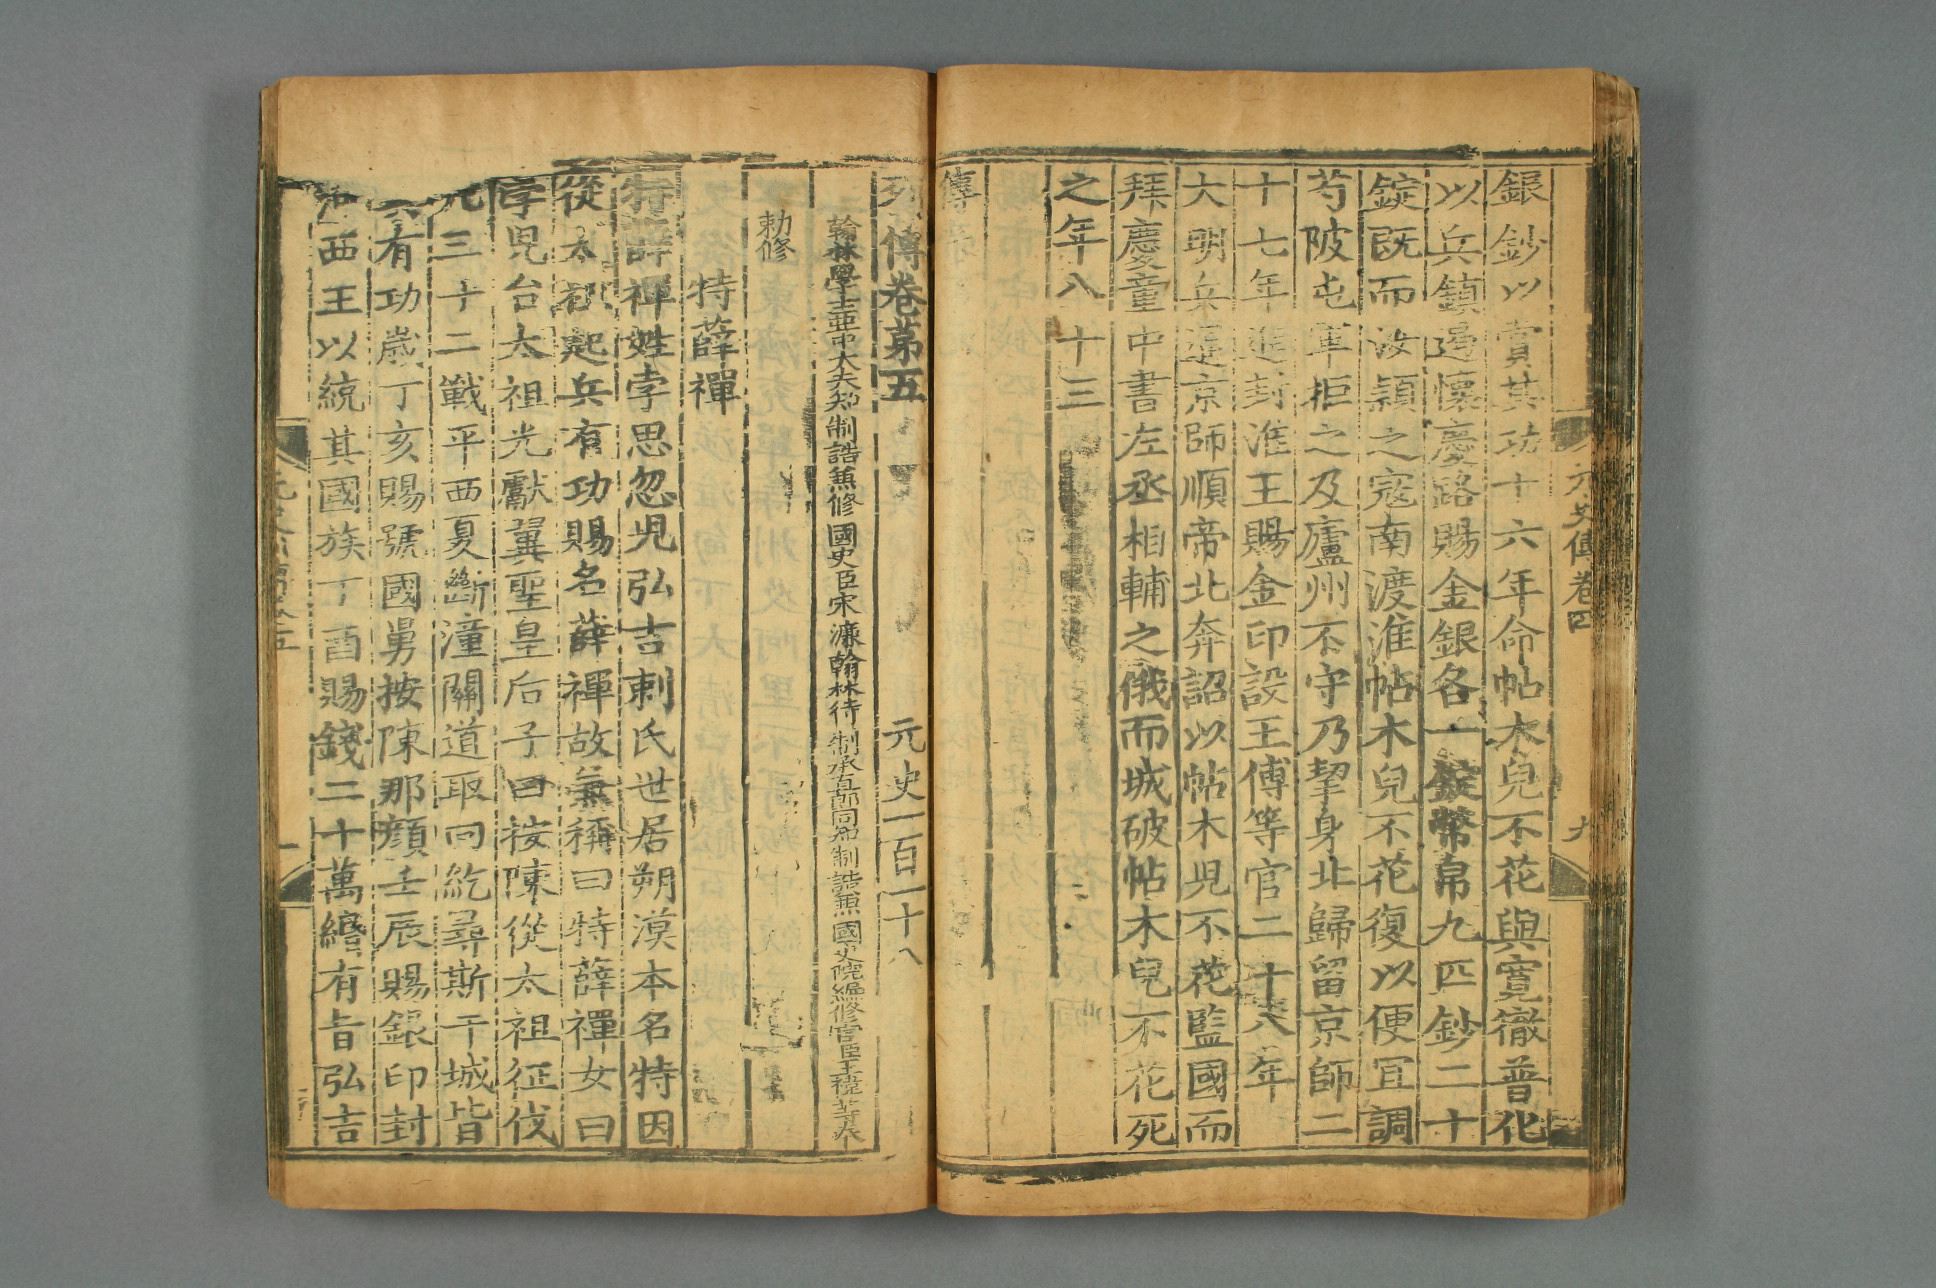 元史傳卷四
九
銀鈔以賞其功十六年命帖木兒不花與寬徹普化
以兵鎮遏懷慶路賜金銀各一錠幣帛九匹鈔二十
錠既而汝潁之寇南渡淮帖木兒不花復以便宜調
芍陂屯軍拒之及廬州不守乃挈身北歸留京師二
十七年進封淮王賜金印設王傅等官二十八年
大明兵逼京師順帝北奔詔以帖木兒不花監國而
拜慶童中書左丞相輔之俄而城破帖木兒不花死
之年八十三
傳
列傳卷第五 元史一百一十八
翰林學士亞中大夫知制誥兼修國史臣宋濂翰林待制承直郎同知制誥兼國史院編修官臣王褘等奉
勅修
特薛禪
特薛禪姓孛思忽兒弘吉剌氏世居朔漠本名特因
從太祖起兵有功賜名薛禪故兼稱曰特薛禪女曰
孛兒台太祖光獻翼聖皇后子曰按陳從太祖征伐
凡三十二戰平西夏斷潼關道取回紇尋斯干城皆
有功歲丁亥賜號國舅按陳那顏壬辰賜銀印封
西王以統其國族丁酉賜錢二十萬緡有旨弘吉